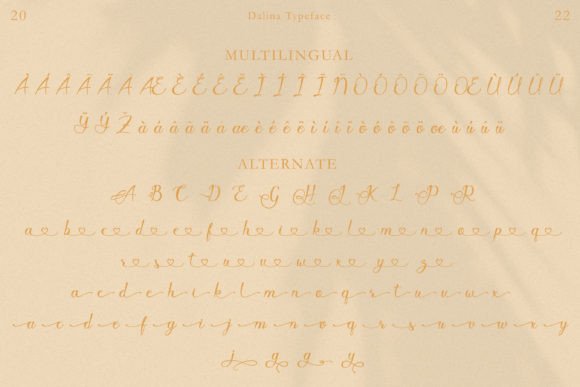 20 Dalina Typeface 22
MULTILINGUAL
À Á Â Ã Ä Å Æ È É Ê Ë Ì Í Î Ï Ñ Ò Ó Ô Õ Ö Œ Ù Ú Û Ü
Ÿ Ý Ž à á â ã ä å æ è é ê ë ì í î ï ò ó ô õ ö œ ù ú û ü
ALTERNATE
A B C D E G H J K L P R
a b c d e f h i k l m n o p q
r s t u v w x y z
a c d e h i k l m n o q r t u v w x
a c d e f g i j m n o q r s u v w x y
j g g y